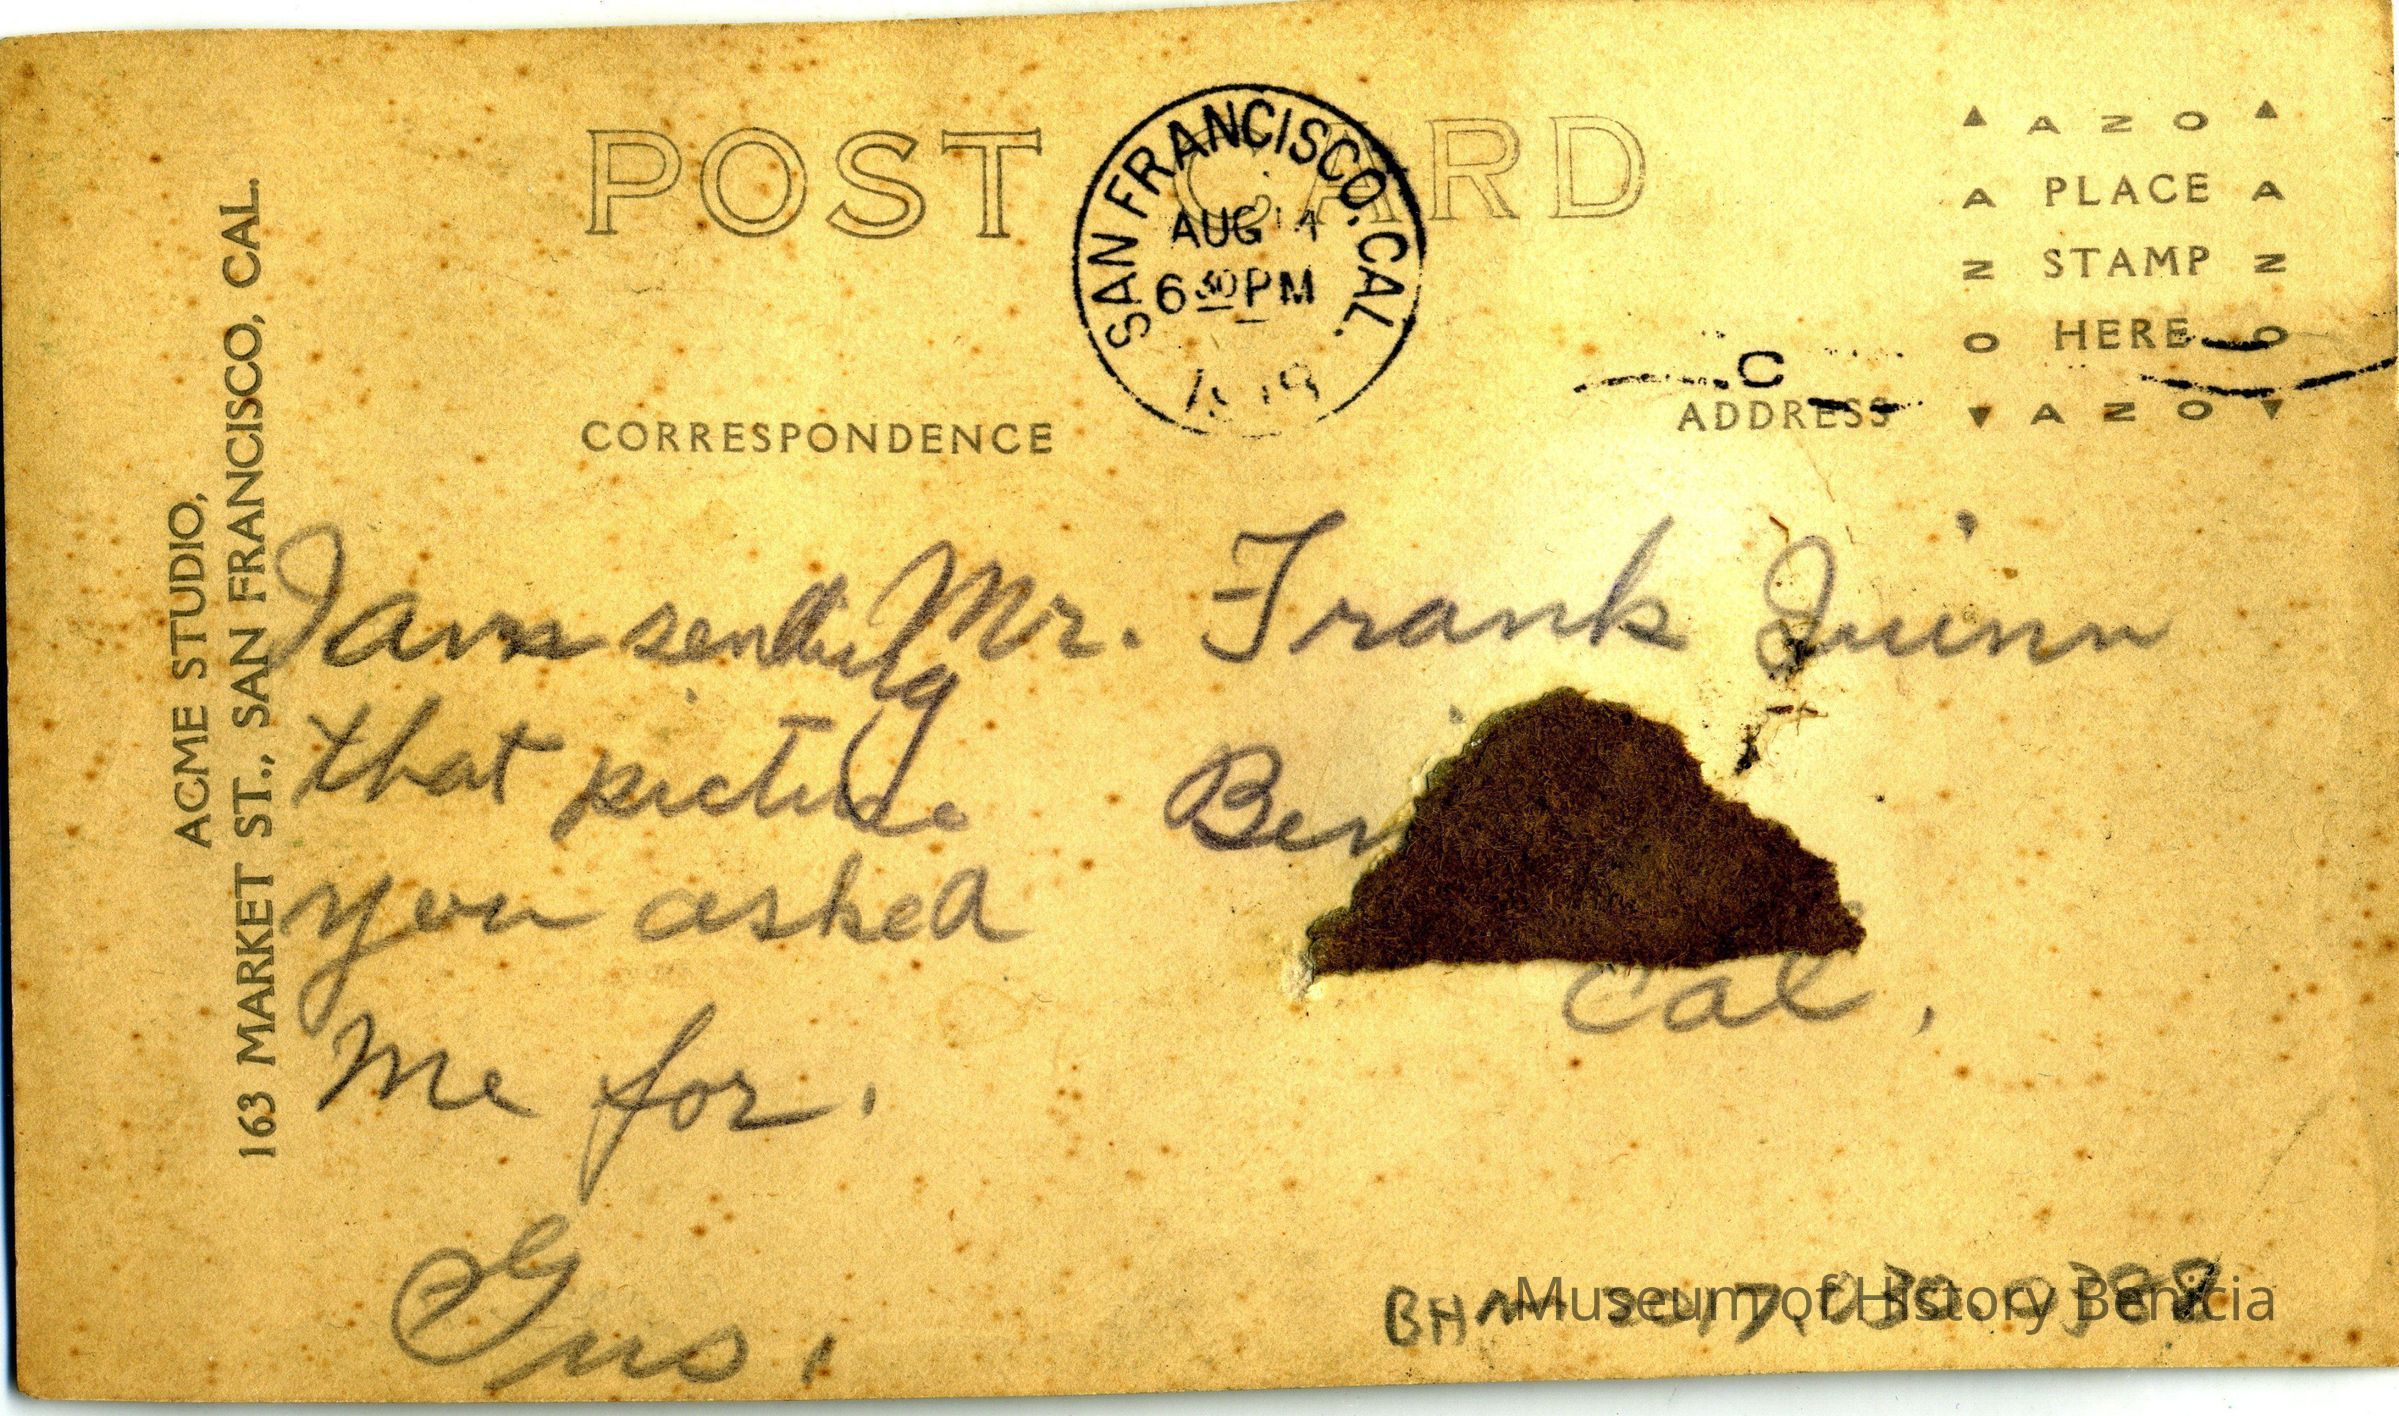 POST CARD
SAN FRANCISCO, CAL.
AUG 14
6 30 PM
▲ A Z O ▲
A PLACE A
Z STAMP Z
O HERE O
▼ A Z O ▼
C
CORRESPONDENCE
ADDRESS
ACME STUDIO,
163 MARKET ST., SAN FRANCISCO, CAL.
I am sending
that picture
you asked
me for.
Gus.
Mr. Frank Quinn
Ben
Cal.
BHM 2017.030.0388
Museum of History Benicia